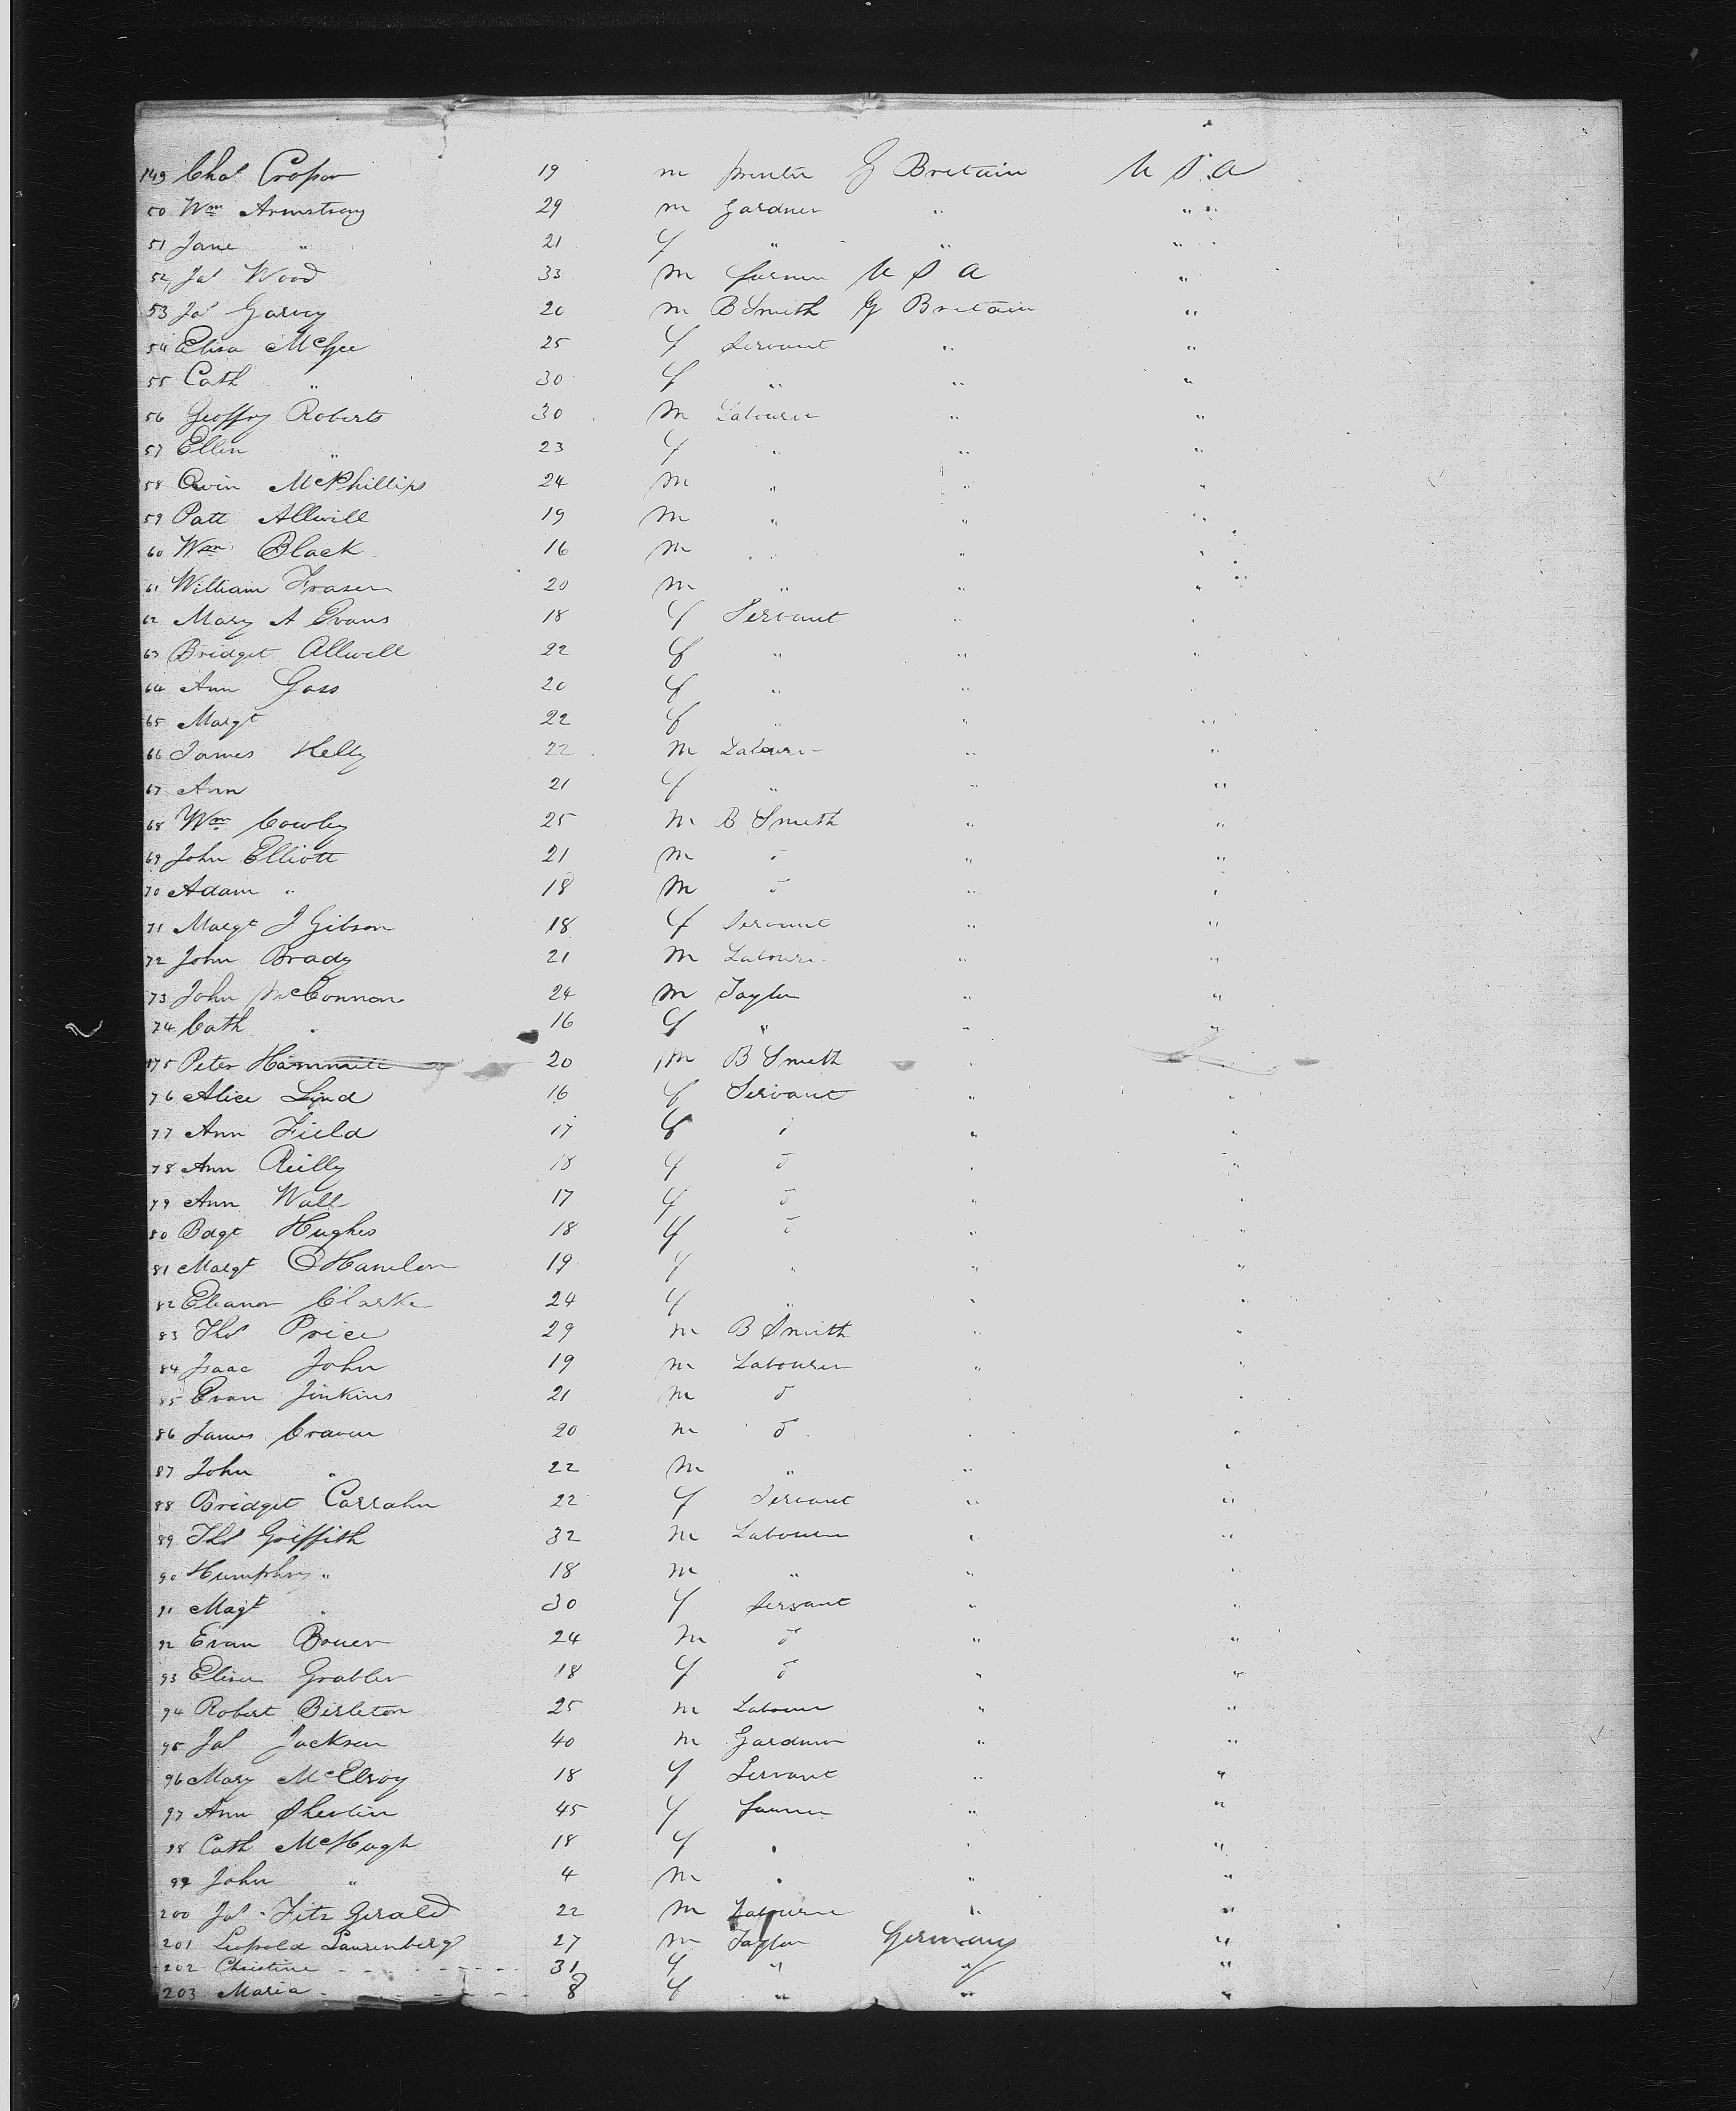 149 Chas Cropor 19 m printer G Britain U S A
50 Wm Armstrong 29 m Gardner " "
51 Jane " 21 f " " "
52 Jas Wood 33 m farmer U S A "
53 Jas Garvey 20 m B Smith G Britain "
54 Eliza McGee 25 f Servant " "
55 Cath " 30 f " " "
56 Geoffry Roberts 30 m Labourer " "
57 Ellen " 23 f " " "
58 Owin McPhillips 24 m " " "
59 Patt Allwill 19 m " " "
60 Wm Black 16 m " " "
61 William Fraser 20 m " " "
62 Mary A Evans 18 f Servant " "
63 Bridget Allwell 22 f " " "
64 Ann Goss 20 f " "
65 Margt 22 f " " "
66 James Kelly 22 m Labourer " "
67 Ann 21 f " " "
68 Wm Cowley 25 m B Smith " "
69 John Elliott 21 m do " "
70 Adam " 18 m do " "
71 Margt J Gibson 18 f Servant " "
72 John Brady 21 m Labourer " "
73 John McConnon 24 m Taylor " "
74 Cath " 16 f " " "
175 Peter Hammill 20 m B Smith "
76 Alice Lynd 16 f Servant " "
77 Ann Field 17 f do " "
78 Ann Reilly 18 f do " "
79 Ann Wall 17 f do " "
80 Bdgt Hughes 18 f do " "
81 Margt O Hanlon 19 f " " "
82 Eleanor Clarke 24 f " " "
83 Ths Price 29 m B Smith " "
84 Isaac John 19 m Labourer " "
85 Evan Jinkins 21 m do " "
86 James Craven 20 m do " "
87 John " 22 m " " "
88 Bridget Carrahn 22 f Servant " "
89 Ths Griffith 32 m Labourer " "
90 Humphry " 18 m " " "
91 Magt " 30 f Servant " "
92 Evan Bouen 24 m do " "
93 Eliza Grabler 18 f do " "
94 Robert Birleton 25 m Labourer " "
95 Jas Jackson 40 m Gardner " "
96 Mary McElroy 18 f Servant " "
97 Ann Shevlin 45 f farmer " "
98 Cath McHugh 18 f " " "
99 John " 4 m " " "
200 Jas Fitz Gerald 22 m Labourer " "
201 Leopold Laurenberg 27 m Taylor Germany "
202 Christine - - - - - 31 f " " "
203 Maria - - - - 8 f " " "